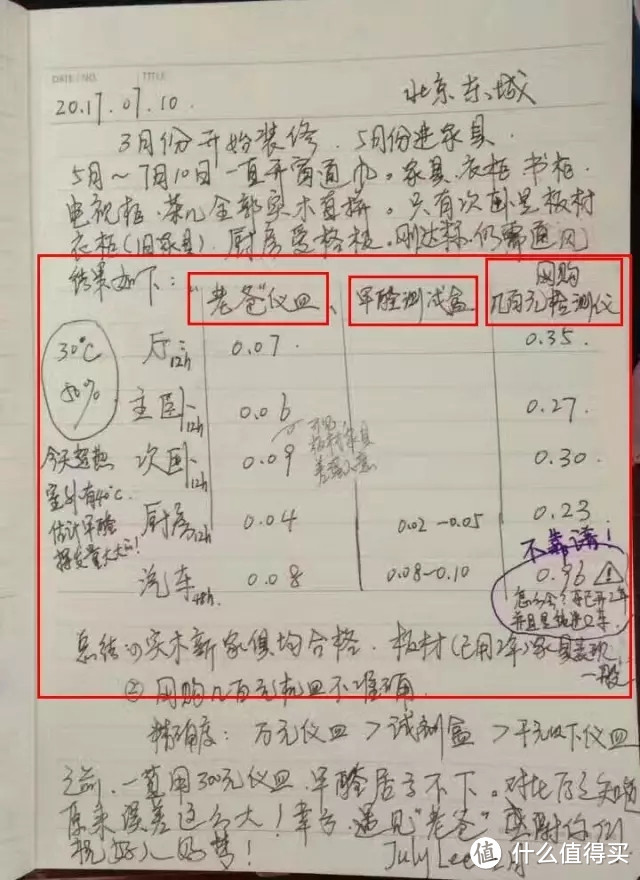 DATE / NO. TITLE
2017.07.10. 北京东城
3月份开始装修. 5月份进家具.
5月~7月10日一直开窗通巾。家具.衣柜 书柜.
电视柜.茶几全部实木直拼。只有次卧是板材
衣柜(旧家具). 厨房受格板.刚达标.仍需通风
结果如下: "老爸"仪皿、 甲醛测试盒 网购
几百元检测仪
30℃ 厅:12h 0.07. 0.35.
50% 主卧-12h 0.06 0.27.
今天超热 次卧-12h 0.09 0.30.
室外有40℃. 厨房12h 0.04 0.02-0.05 0.23.
估计甲醛 不靠谱!
挥发量大大的! 汽车48h 0.08 0.08-0.10 0.96
总结:(1)实木新家俱均合格. 板材(已用2年)家具表现
一般
② 网购几百元机皿不准确.
精确度: 万元仪皿 > 试剂盒 > 千元以下仪皿
之前.一直用300元仪皿.甲醛居高不下。对比后之知道
原来误差这么大!幸亏.遇见"老爸" 感谢你们
祝好人好梦! July Lee
值 什么值得买